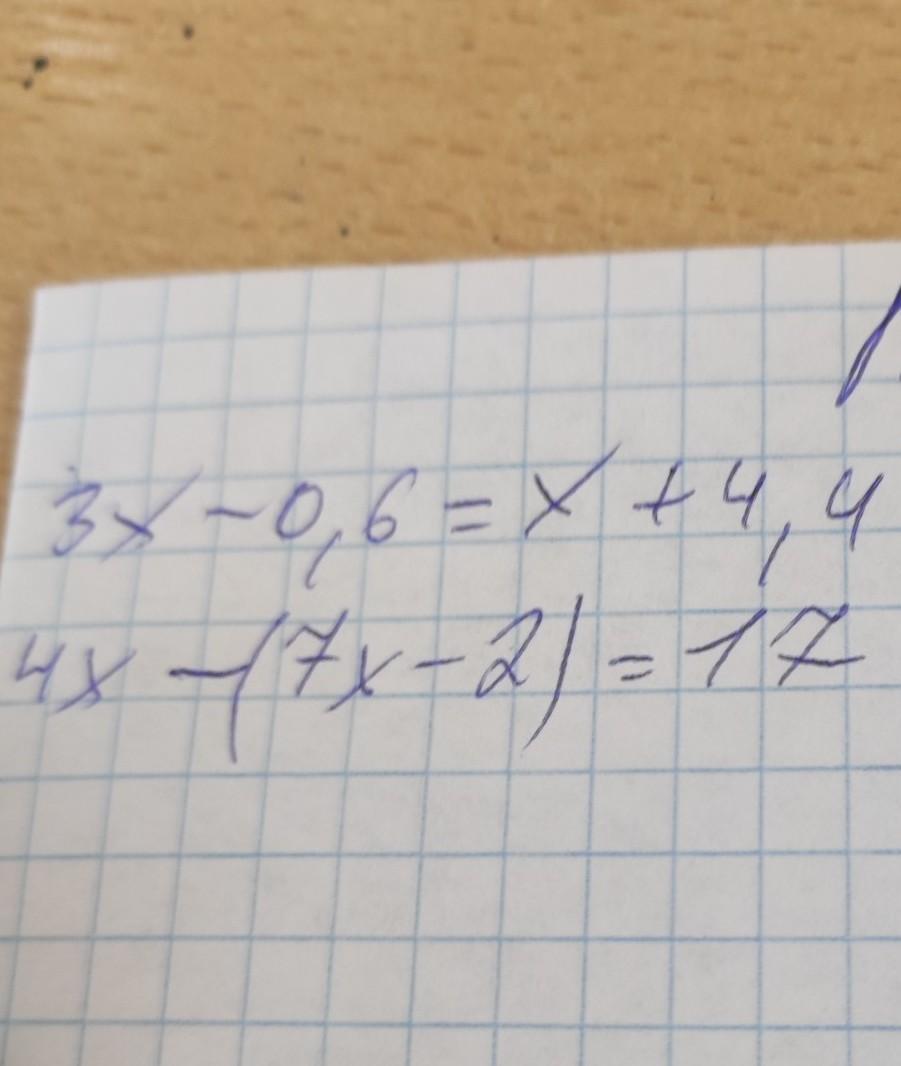 3x - 0,6 = x + 4,4
4x - (7x - 2) = 17